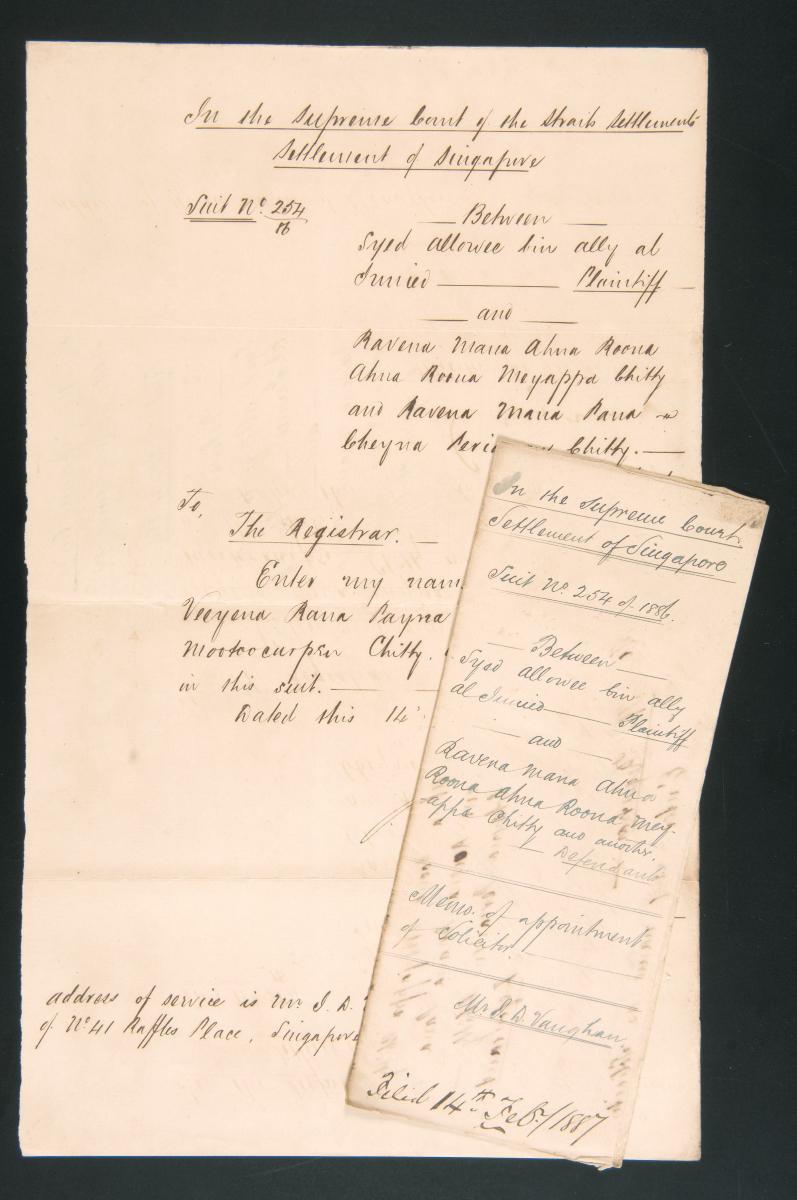 In the Supreme Court of the Straits Settlements
Settlement of Singapore
Suit No. 254/86
Between
Syed Allowee bin Ally al
Junied Plaintiff
and
Ravena Mana Ahna Roona
Ahna Roona Meyappa Chitty
and Ravena Mana Pana
Cheyna Chitty.
To,
The Registrar.
Enter my
Veeyena Rana Payna
Mootoocurpen Chitty.
in this suit.
Dated this 14
address of service is Mr J. D.
of No 41 Raffles Place, Singapore
In the Supreme Court.
Settlement of Singapore
Suit No. 254 of 1886.
Between
Syed Allowee bin Ally
al Junied Plaintiff
and
Ravena Mana Ahna
Roona Ahna Roona Mey-
appa Chitty and another.
Defendants
Memo. of appointment
of Solicitor
Mr J. D. Vaughan
Filed 14th Feby/1887